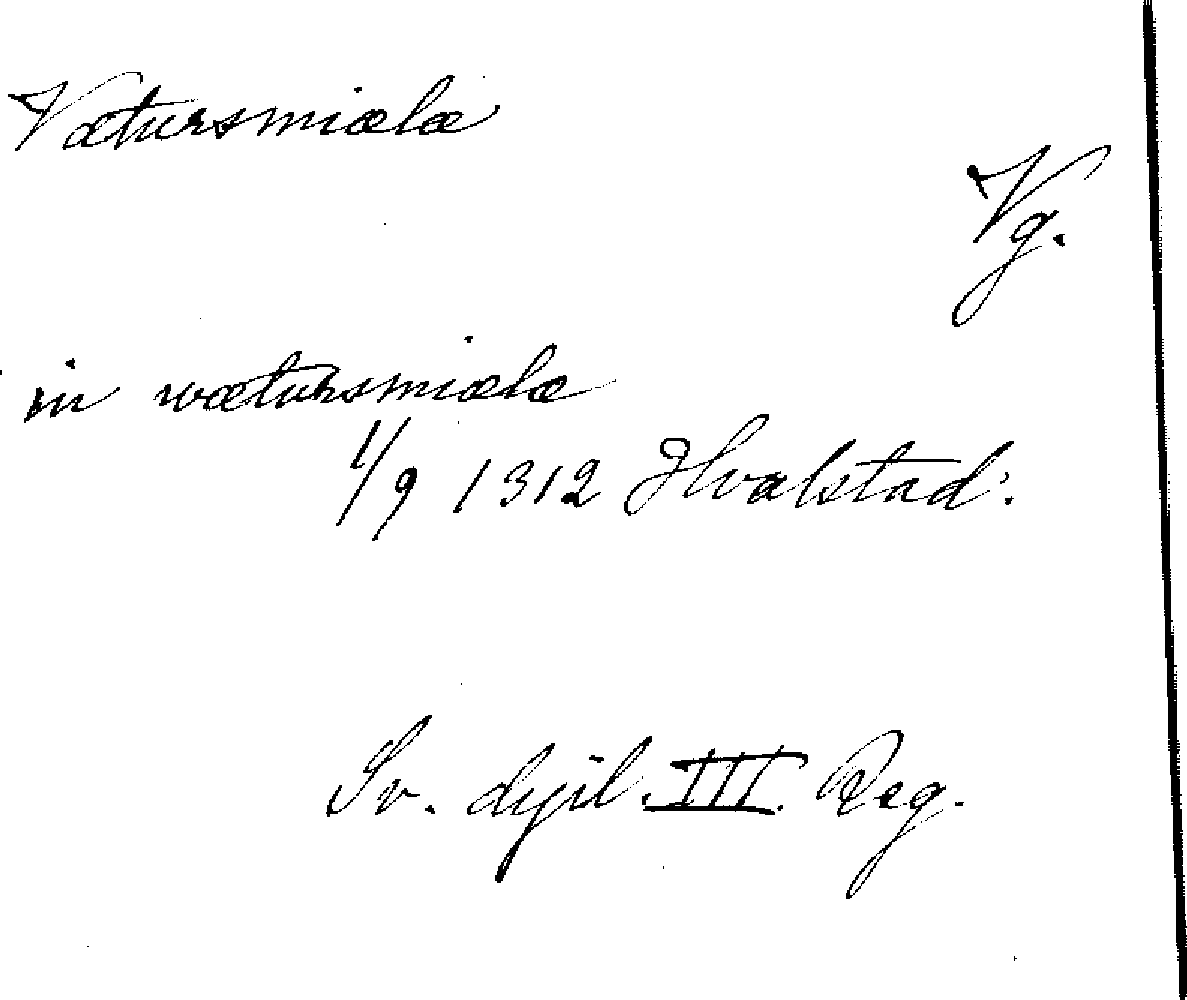 Vætursmiælæ
Vg.
in wætursmiælæ
1/9 1312 Hvalstad.
Sv. dipl. III. Reg.